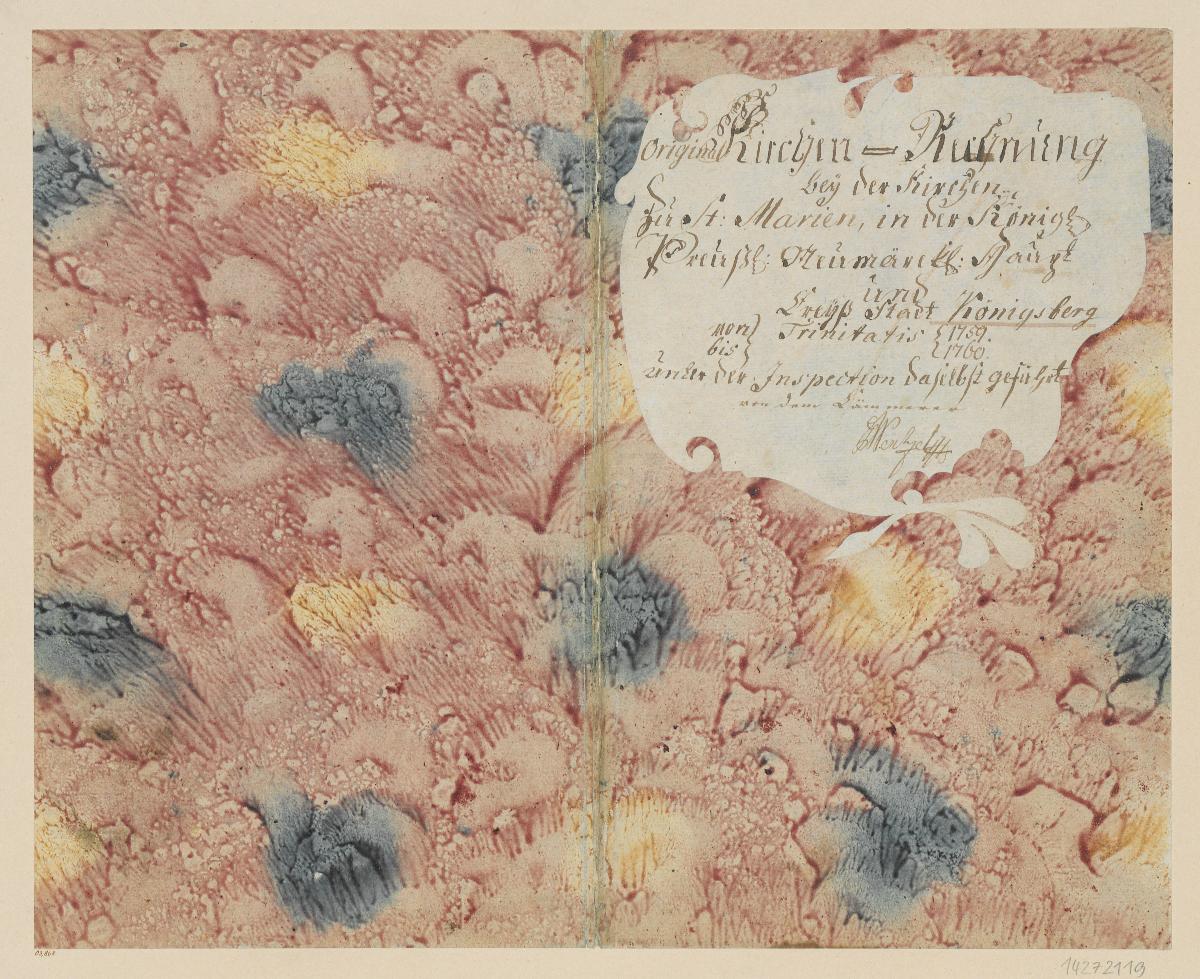 Original Kirchen = Rechnung
bey der Kirchen
zu St: Marien, in der Königl
Preußl: Neumärckl: Haupt
und
Creyß Stadt Königsberg
von } Trinitatis { 1759.
bis } { 1760.
unter der Inspection daselbst geführt
von dem Cämmerer
14272119